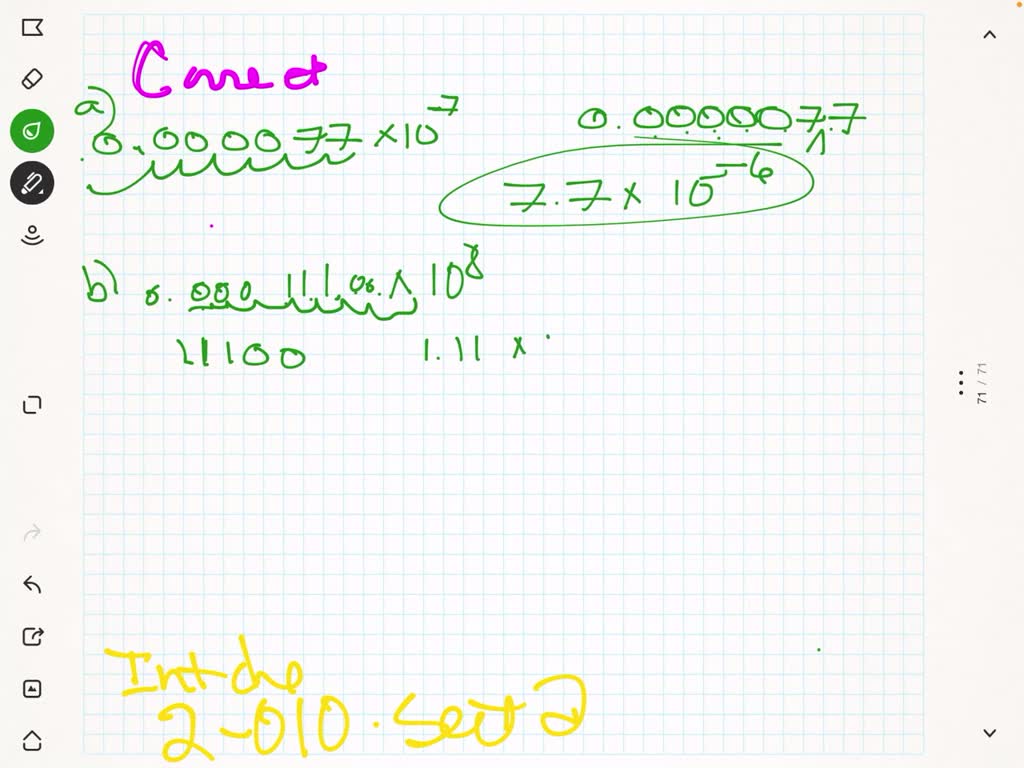 Correct
a)
0.000077 × 10^-7
0.0000077
7.7 × 10^-6
b) 0.000 111.00. × 10^8
11100 1.11 ×
Int die
2-010. Seit 2
71 / 71